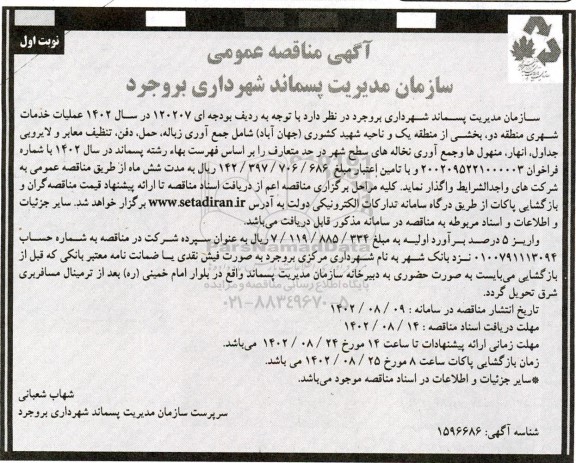 نوبت اول
آگهی مناقصه عمومی
سازمان مدیریت پسماند شهرداری بروجرد
سازمان مدیریت پسماند شهرداری بروجرد در نظر دارد با توجه به ردیف بودجه ای ۱۲۰۲۰۷ در سال ۱۴۰۲ عملیات خدمات
شهری منطقه دو، بخشی از منطقه یک و ناحیه شهید کشوری (جهان آباد) شامل جمع آوری زباله، حمل، دفن، تنظیف معابر و لایروبی
جداول، انهار، منهول ها وجمع آوری نخاله های سطح شهر در حد متعارف را بر اساس فهرست بهاء رشته پسماند در سال ۱۴۰۲ با شماره
فراخوان ۲۰۰۲۰۹۵۲۲۱۰۰۰۰۰۳ و با تامین اعتبار مبلغ ۶۸۶ / ۷۰۶ / ۳۹۷ / ۱۴۲ ریال به مدت شش ماه از طریق مناقصه عمومی به
شرکت های واجدالشرایط واگذار نماید. کلیه مراحل برگزاری مناقصه اعم از دریافت اسناد مناقصه تا ارائه پیشنهاد قیمت مناقصه‌گران و
بازگشایی پاکات از طریق درگاه سامانه تدارکات الکترونیکی دولت به آدرس www.setadiran.ir برگزار خواهد شد. سایر جزئیات
و اطلاعات و اسناد مربوطه به مناقصه در سامانه مذکور قابل دریافت می‌باشد.
واریز ۵ درصد برآورد اولیه به مبلغ ۳۳۴ / ۸۸۵ / ۱۱۹ / ۷ ریال به عنوان سپرده شرکت در مناقصه به شماره حساب
۰۱۰۰۷۹۱۱۱۳۰۹۴ نزد بانک شهر به نام شهرداری مرکزی بروجرد به صورت فیش نقدی یا ضمانت نامه معتبر بانکی که قبل از
بازگشایی می‌بایست به صورت حضوری به دبیرخانه سازمان مدیریت پسماند واقع در بلوار امام خمینی (ره) بعد از ترمینال مسافربری
شرق تحویل گردد.
پایگاه اطلاع رسانی مناقصه و مزایده
۰۲۱-۸۸۳۴۹۶۷۰-۵
تاریخ انتشار مناقصه در سامانه : ۰۹ / ۰۸ / ۱۴۰۲
مهلت دریافت اسناد مناقصه : ۱۴ / ۰۸ / ۱۴۰۲
مهلت زمانی ارائه پیشنهادات تا ساعت ۱۴ مورخ ۲۴ / ۰۸ / ۱۴۰۲ می‌باشد.
زمان بازگشایی پاکات ساعت ۸ مورخ ۲۵ / ۰۸ / ۱۴۰۲ می باشد.
*سایر جزئیات و اطلاعات در اسناد مناقصه موجود می‌باشد.
شهاب شعبانی
سرپرست سازمان مدیریت پسماند شهرداری بروجرد
شناسه آگهی: ۱۵۹۶۶۸۶